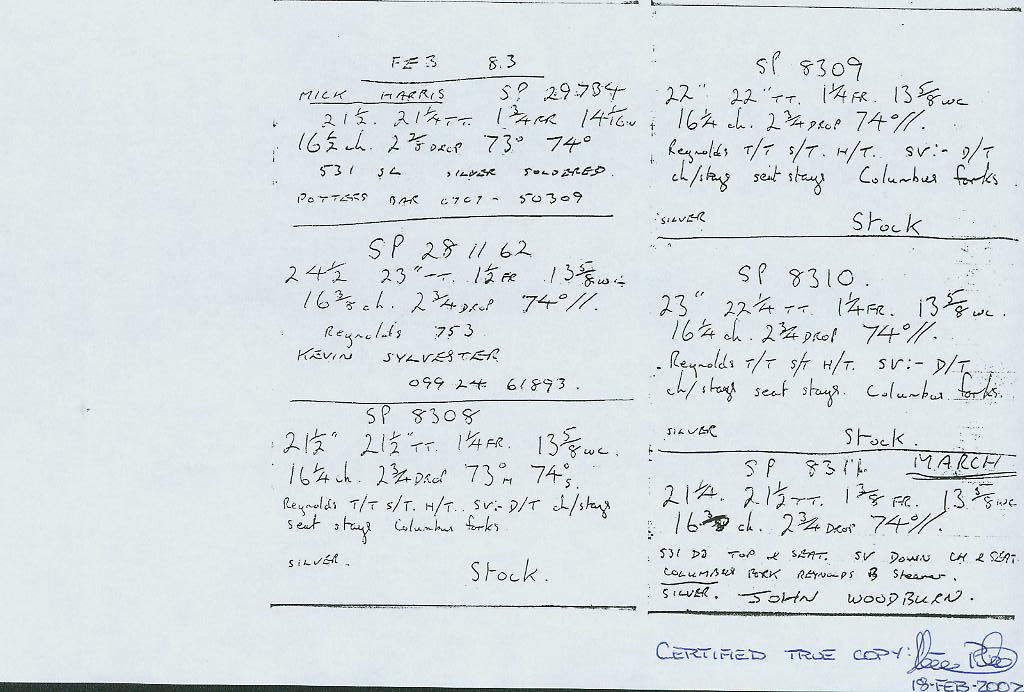 FEB 8.3
MICK HARRIS SP 29734
21½. 21¼ TT. 1¾ FR 14 1/16 w
16½ ch. 2⅜ DROP 73° 74°
531 SL SILVER SOLDERED.
POTTERS BAR 0707 - 50309
SP 281162
24½ 23" TT. 1½ FR 13⅝ wc
16⅜ ch. 2¾ DROP 74° //.
Reynolds 753
KEVIN SYLVESTER
099 24 61893.
SP 8308
21½" 21½" TT. 1¼ FR. 13⅝ wc.
16¼ ch. 2¾ DROP 73° H 74° S.
Reynolds T/T S/T. H/T. SV:- D/T ch/stays
seat stays Columbus forks
SILVER.
Stock.
SP 8309
22" 22" TT. 1¼ FR. 13⅝ wc
16¼ ch. 2¾ DROP 74° //.
Reynolds T/T S/T. H/T. SV:- D/T
ch/stays seat stays Columbus forks
SILVER Stock
SP 8310.
23" 22¼ TT. 1¼ FR. 13⅝ wc.
16¼ ch. 2¾ DROP 74° //.
Reynolds T/T S/T H/T. SV:- D/T
ch/stays seat stays. Columbus forks.
SILVER Stock.
SP 8311. MARCH
21¼. 21½ TT. 1⅜ FR. 13⅝ wc
16⅜ ch. 2¾ DROP 74° //.
531 DB TOP & SEAT. SV DOWN CH & SEAT
COLUMBUS FORK REYNOLDS B Steerer.
SILVER. JOHN WOODBURN.
CERTIFIED TRUE COPY:
18-FEB-2007